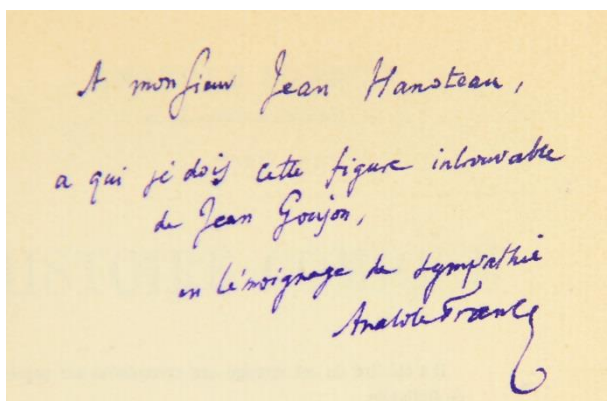 A monsieur Jean Hanoteau,
a qui je dois cette figure introuvable
de Jean Goujon,
en témoignage de sympathie
Anatole France